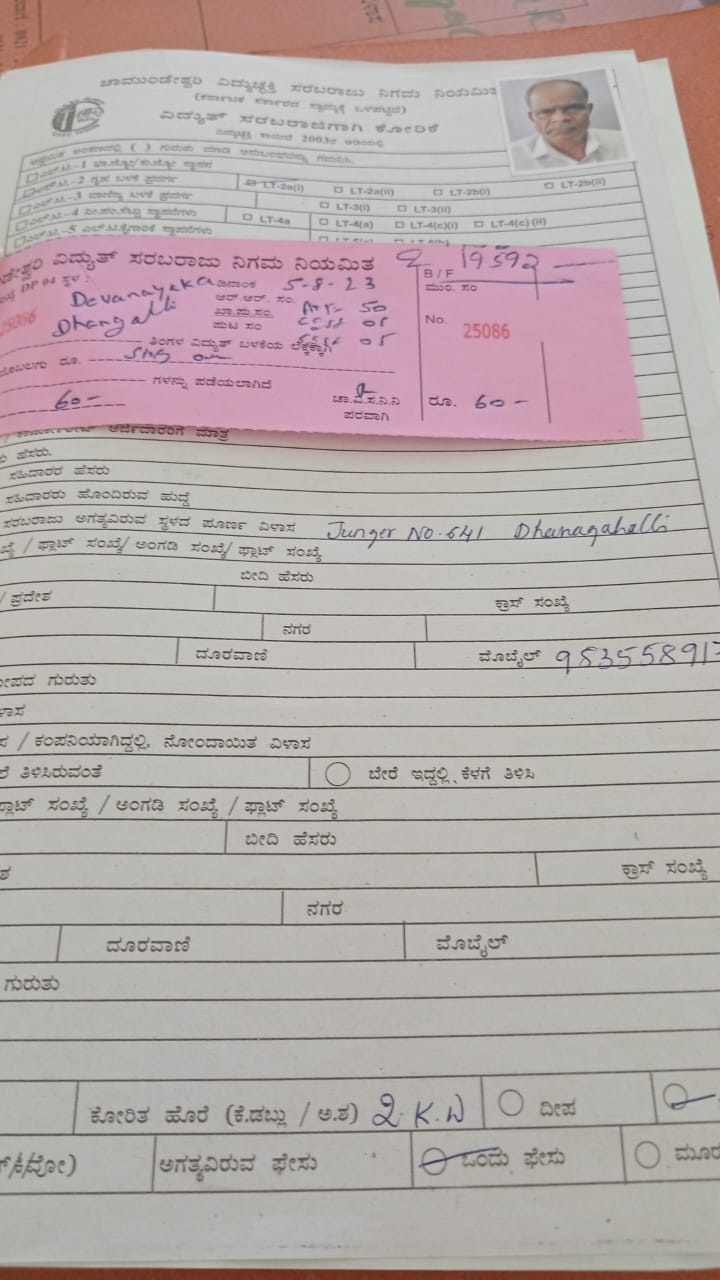 ಚಾಮುಂಡೇಶ್ವರಿ ವಿದ್ಯುಚ್ಛಕ್ತಿ ಸರಬರಾಜು ನಿಗಮ ನಿಯಮಿತ
(ಕರ್ನಾಟಕ ಸರ್ಕಾರದ ಸ್ವಾಮ್ಯಕ್ಕೆ ಒಳಪಟ್ಟಿದೆ)
ವಿದ್ಯುತ್ ಸರಬರಾಜಿಗಾಗಿ ಕೋರಿಕೆ
ವಿದ್ಯುಚ್ಛಕ್ತಿ ಕಾಯಿದೆ 2003ರ ಅಡಿಯಲ್ಲಿ
-2 ಗೃಹ ಬಳಕೆ LT-2a(i) LT-2a(ii) LT-2b(i) LT-2b(ii)
-3 ವಾಣಿಜ್ಯ ಬಳಕೆ LT-3(i) LT-3(ii)
-4 ನೀ.ಪಂ.ಸೆಟ್ಟು ಸ್ಥಾವರಗಳು LT-4a LT-4(a) LT-4(c)(i) LT-4(c)(ii)
-5
ಡೇಶ್ವರಿ ವಿದ್ಯುತ್ ಸರಬರಾಜು ನಿಗಮ ನಿಯಮಿತ 19592
ಸ್ಥಳ : Devanayaka ದಿನಾಂಕ 5-8-23 B/F ಮುಂ. ಸಂ
25086 Dhangalli ಆರ್.ಆರ್. ಸಂ. 50
ಖಾ.ಪು.ಸಂ. 05 No. 25086
ಪುಟ ಸಂ 05
ತಿಂಗಳ ವಿದ್ಯುತ್ ಬಳಕೆಯ ಲೆಕ್ಕಕ್ಕಾಗಿ
ಮೊಬಲಗು ರೂ.
ಗಳನ್ನು ಪಡೆಯಲಾಗಿದೆ
60- ಚಾ.ವಿ.ಸ.ನಿ.ನಿ ರೂ. 60-
ಪರವಾಗಿ
ಅರ್ಜಿದಾರರಿಗೆ ಮಾತ್ರ
ಹೆಸರು.
ಸಹಿದಾರರ ಹೆಸರು
ಸಹಿದಾರರು ಹೊಂದಿರುವ ಹುದ್ದೆ
ಸರಬರಾಜು ಅಗತ್ಯವಿರುವ ಸ್ಥಳದ ಪೂರ್ಣ ವಿಳಾಸ Junger No. 641 Dhanagahalli
ಖ್ಯೆ / ಫ್ಲಾಟ್ ಸಂಖ್ಯೆ/ ಅಂಗಡಿ ಸಂಖ್ಯೆ/ ಫ್ಲಾಟ್ ಸಂಖ್ಯೆ
ಬೀದಿ ಹೆಸರು
/ ಪ್ರದೇಶ ಕ್ರಾಸ್ ಸಂಖ್ಯೆ
ನಗರ
ದೂರವಾಣಿ ಮೊಬೈಲ್ 953558917
ೀಪದ ಗುರುತು
ಳಾಸ
/ ಕಂಪನಿಯಾಗಿದ್ದಲ್ಲಿ, ನೋಂದಾಯಿತ ವಿಳಾಸ
ಲೆ ತಿಳಿಸಿರುವಂತೆ ಬೇರೆ ಇದ್ದಲ್ಲಿ ಕೆಳಗೆ ತಿಳಿಸಿ
ಫ್ಲಾಟ್ ಸಂಖ್ಯೆ / ಅಂಗಡಿ ಸಂಖ್ಯೆ / ಫ್ಲಾಟ್ ಸಂಖ್ಯೆ
ಬೀದಿ ಹೆಸರು
ಶ ಕ್ರಾಸ್ ಸಂಖ್ಯೆ
ನಗರ
ದೂರವಾಣಿ ಮೊಬೈಲ್
ಗುರುತು
ಕೋರಿತ ಹೊರೆ (ಕೆ.ಡಬ್ಲು / ಅ.ಶ) 2 K.W ದೀಪ
ಅಗತ್ಯವಿರುವ ಫೇಸು ಒಂದು ಫೇಸು ಮೂರ